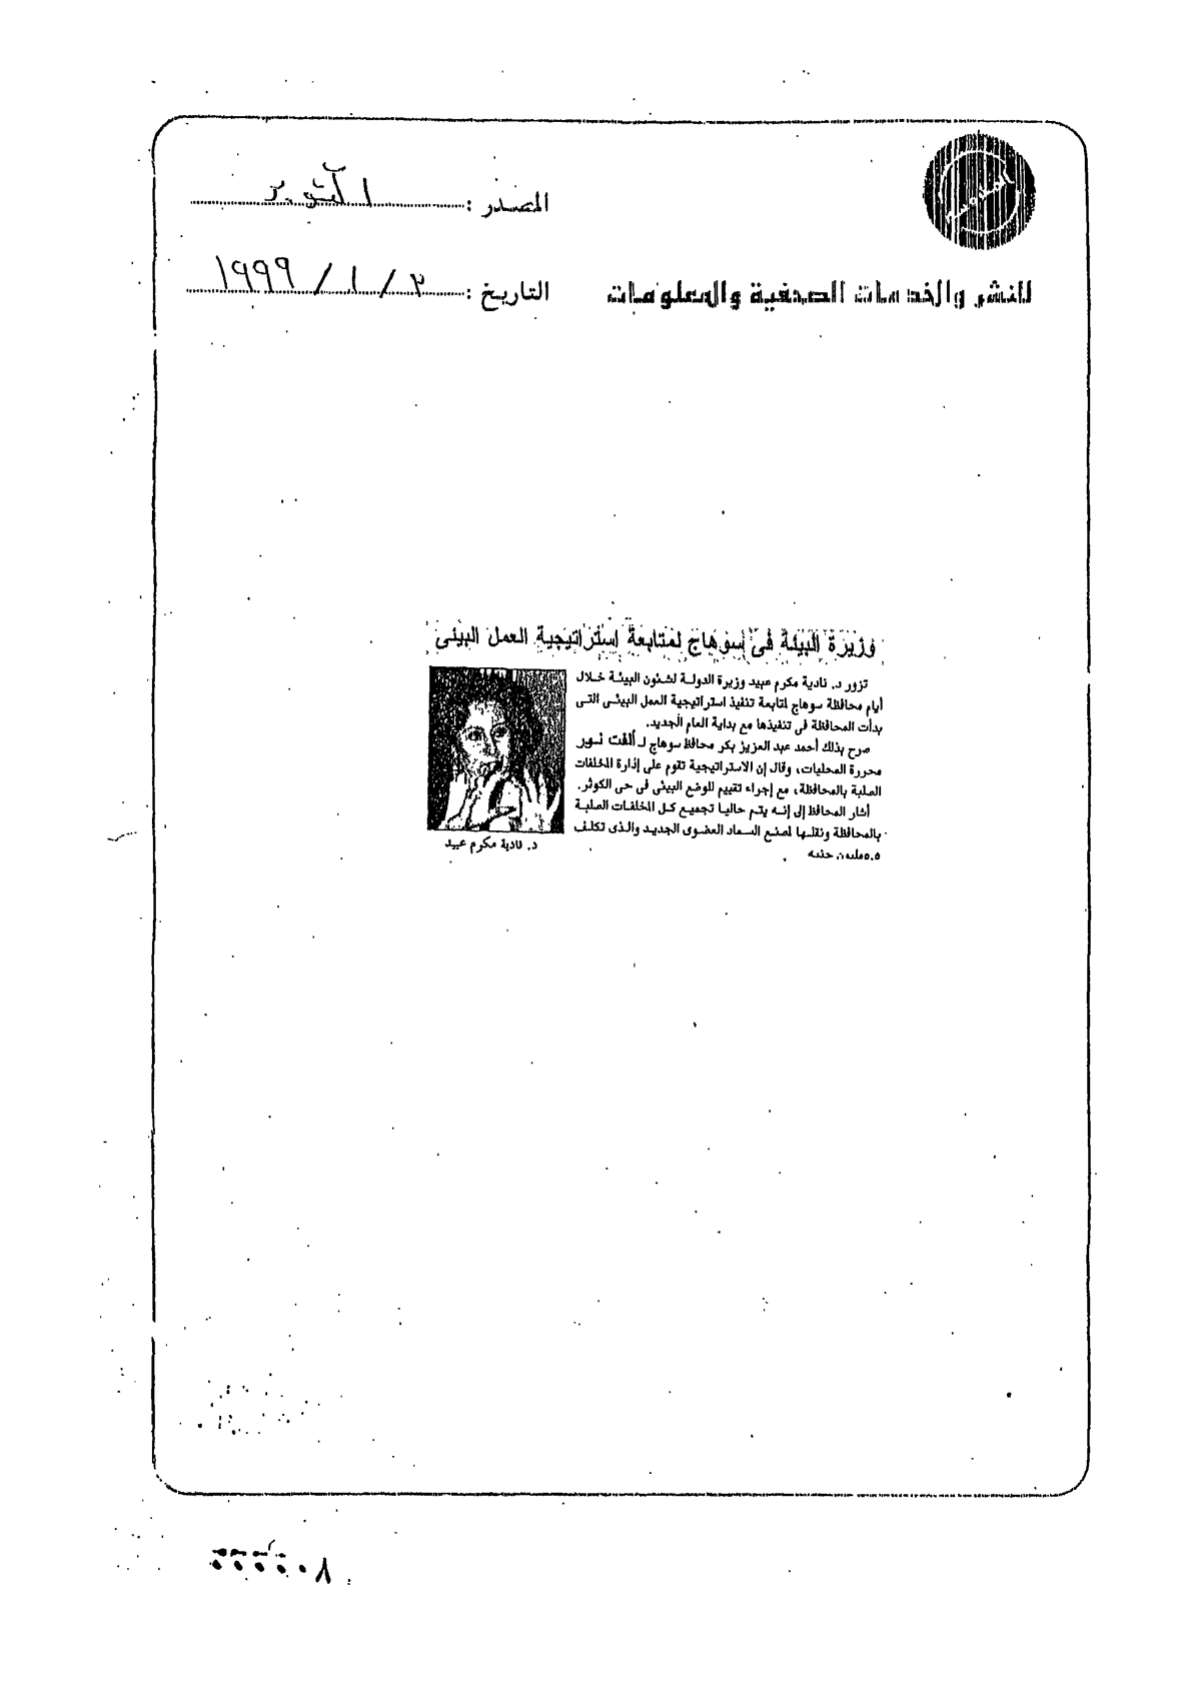 المصدر : اكتوبر
للنشر والخدمات الصحفية والمعلومات
التاريخ : ٣ / ١ / ١٩٩٩
وزيرة البيئة فى سوهاج لمتابعة إستراتيجية العمل البيئى
تزور د. نادية مكرم عبيد وزيرة الدولة لشئون البيئة خلال
أيام محافظة سوهاج لمتابعة تنفيذ استراتيجية العمل البيئى التى
بدأت المحافظة فى تنفيذها مع بداية العام الجديد.
صرح بذلك أحمد عبد العزيز بكر محافظ سوهاج لـ ألفت نوير
محررة المحليات، وقال إن الاستراتيجية تقوم على إدارة المخلفات
الصلبة بالمحافظة، مع إجراء تقييم للوضع البيئى فى حى الكوثر.
أشار المحافظ إلى إنه يتم حاليا تجميع كل المخلفات الصلبة
بالمحافظة ونقلها لمصنع السماد العضوى الجديد والذى تكلف
٥.٥ مليون جنيه
د. نادية مكرم عبيد